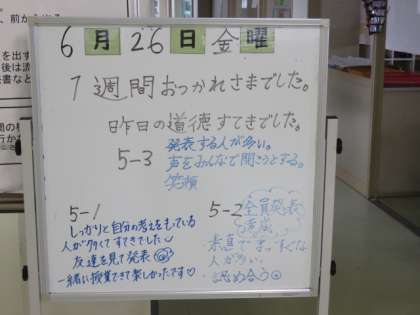 6月26日金曜
1週間おつかれさまでした。
昨日の道徳すてきでした。
5-3
発表する人が多い。
声をみんなで聞こうとする。
笑顔
5-1
しっかりと自分の考えをもっている
人が多くてすてきでした
友達を見て発表
一緒に授業できて楽しかったです♡
5-2
全員発表
素直でまっすぐな
人が多い。
認め合う